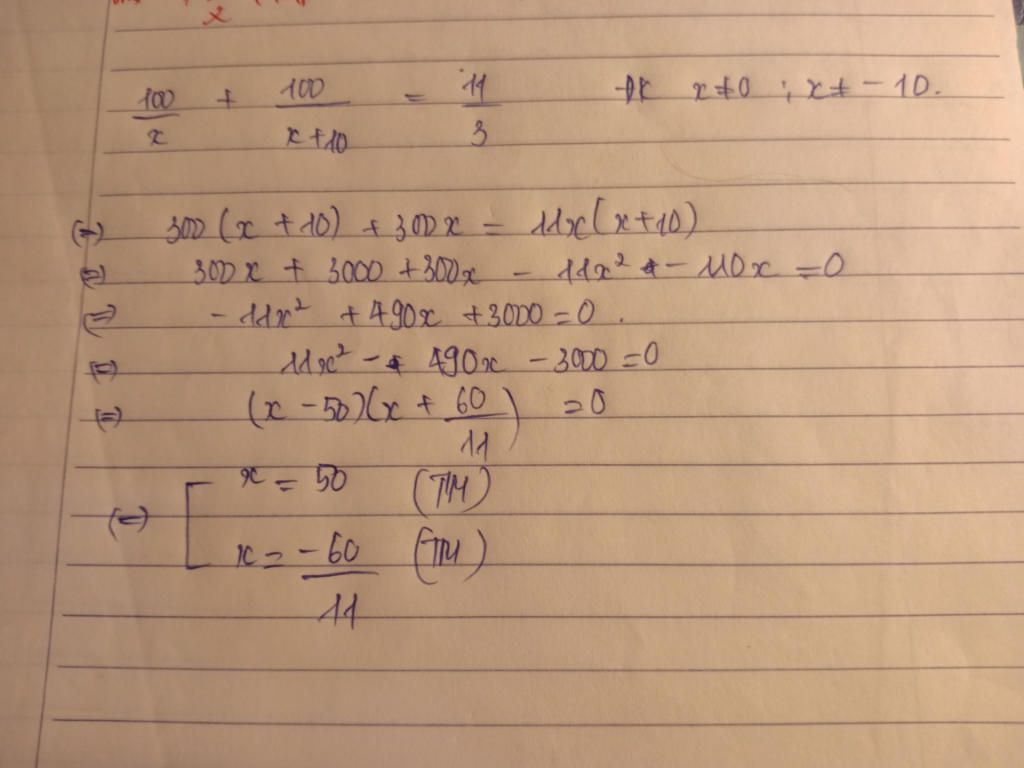 100/x + 100/(x+10) = 11/3 ĐK x≠0 ; x≠ -10.
(=) 300(x+10) + 300x = 11x(x+10)
(=) 300x + 3000 + 300x - 11x² - 110x = 0
(=) -11x² + 490x + 3000 = 0.
(=) 11x² - 490x - 3000 = 0
(=) (x - 50)(x + 60/11) = 0
(=) [ x = 50 (TM)
x = -60/11 (TM)